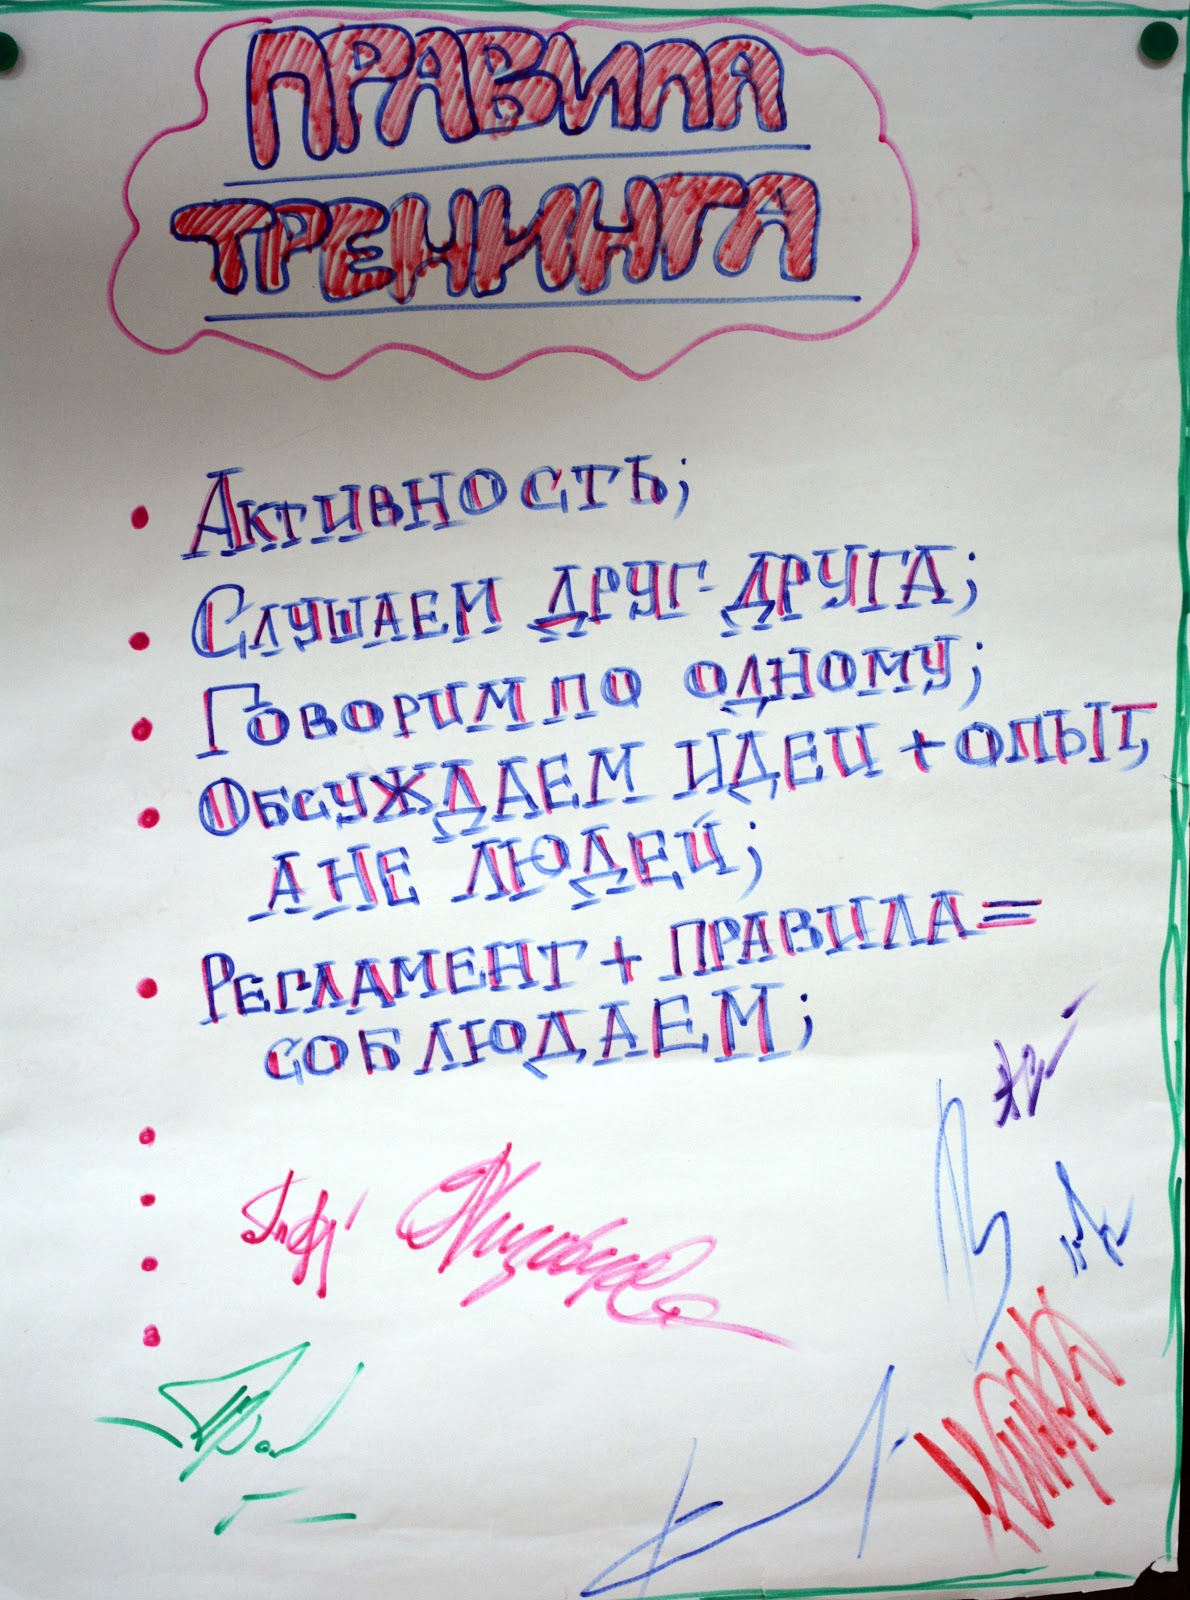 ПРАВИЛА
ТРЕНИНГА
• АКТИВНОСТЬ;
• СЛУШАЕМ ДРУГ-ДРУГА;
• ГОВОРИМ ПО ОДНОМУ;
• ОБСУЖДАЕМ ИДЕИ + ОПЫТ,
А НЕ ЛЮДЕЙ;
• РЕГЛАМЕНТ + ПРАВИЛА =
СОБЛЮДАЕМ;